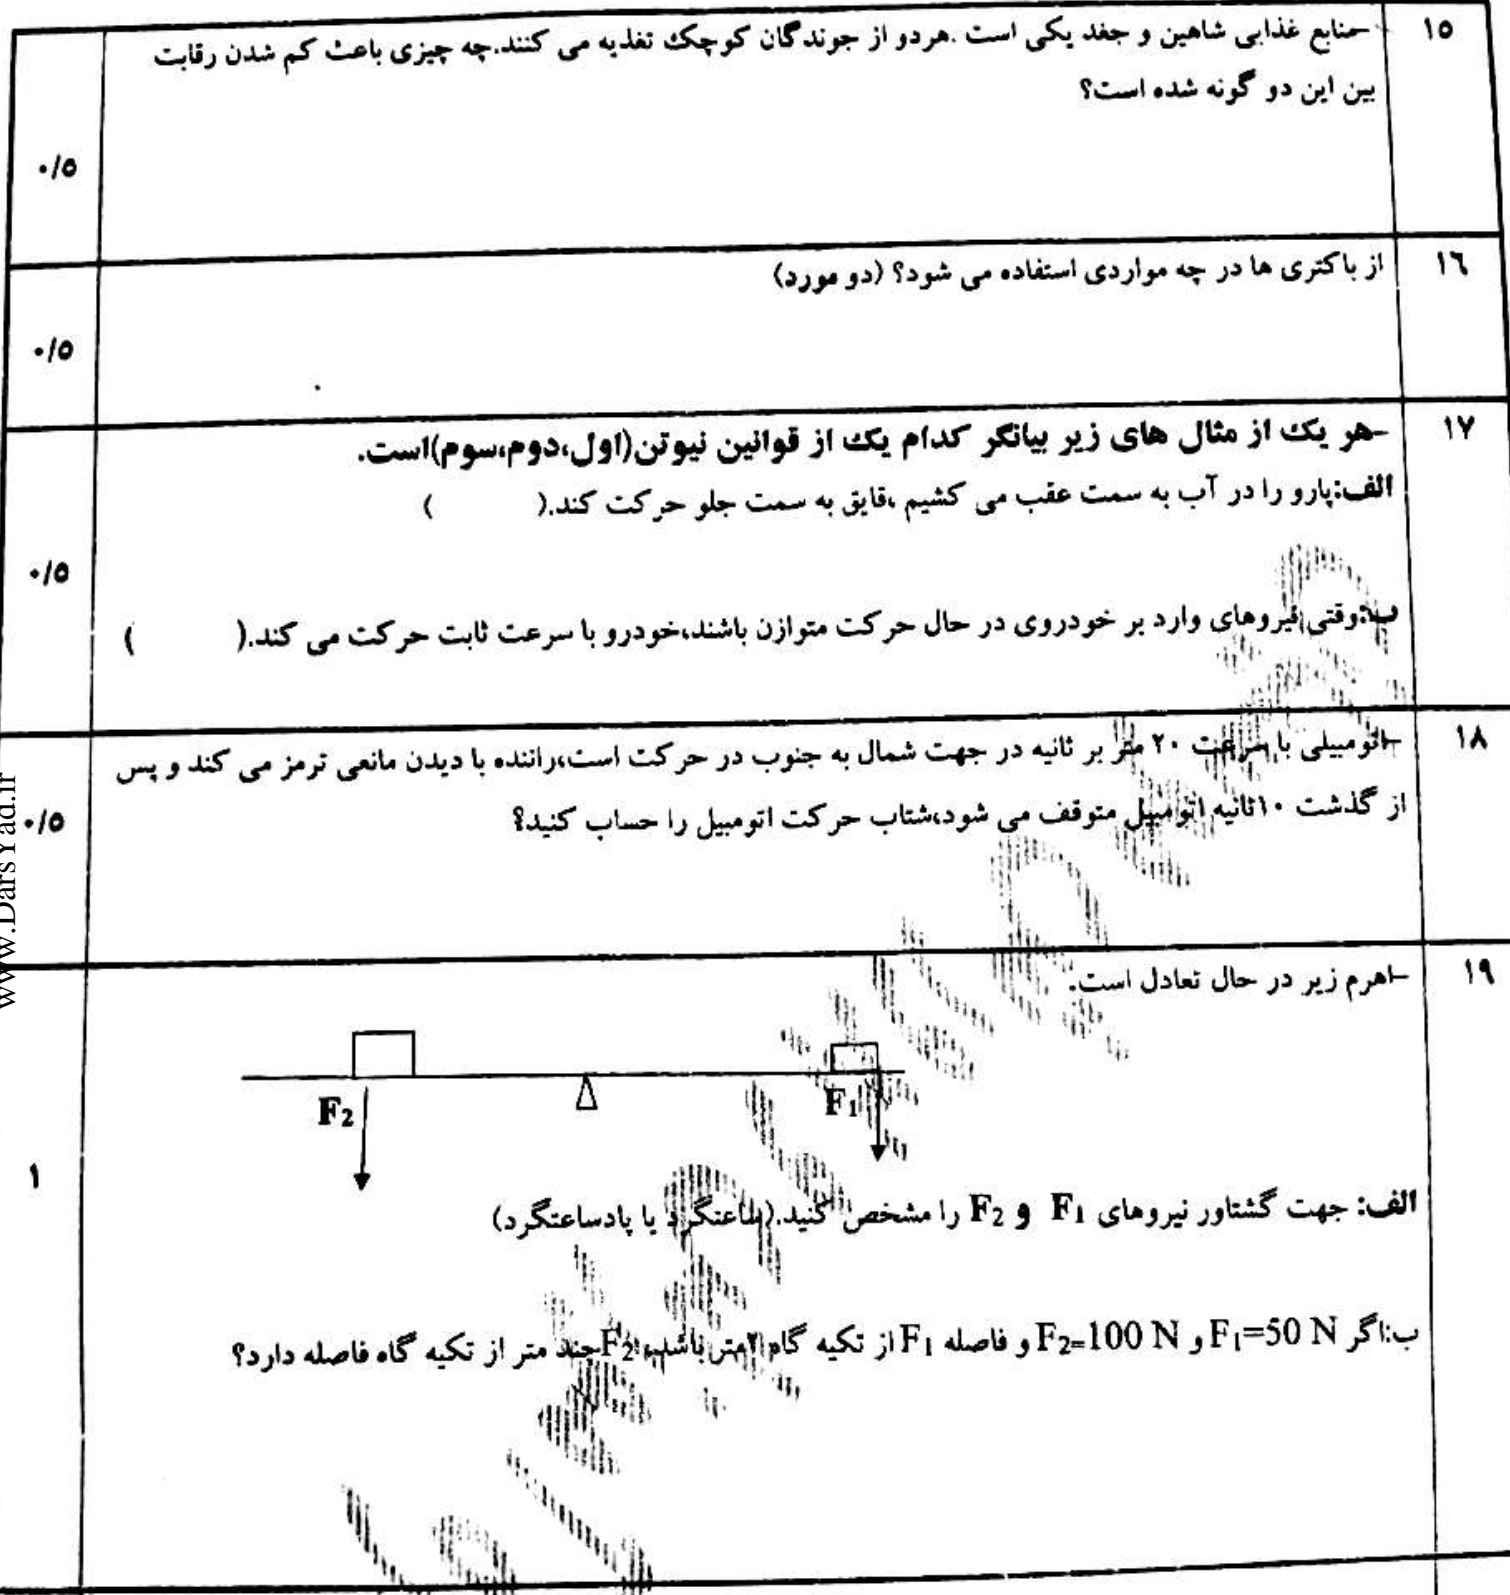 ۱۵
-منابع غذایی شاهین و جغد یکی است .هردو از جوندگان کوچک تغذیه می کنند.چه چیزی باعث کم شدن رقابت
بین این دو گونه شده است؟
۰/۵
۱۶
از باکتری ها در چه مواردی استفاده می شود؟ (دو مورد)
۰/۵
۱۷
-هر یک از مثال های زیر بیانگر کدام یک از قوانین نیوتن(اول،دوم،سوم)است.
الف:پارو را در آب به سمت عقب می کشیم ،قایق به سمت جلو حرکت کند.( )
۰/۵
ب:وقتی نیروهای وارد بر خودروی در حال حرکت متوازن باشند،خودرو با سرعت ثابت حرکت می کند.( )
۱۸
-اتومبیلی با سرعت ۲۰ متر بر ثانیه در جهت شمال به جنوب در حرکت است،راننده با دیدن مانعی ترمز می کند و پس
از گذشت ۱۰ثانیه اتومبیل متوقف می شود،شتاب حرکت اتومبیل را حساب کنید؟
۰/۵
www.DarsYad.ir
۱۹
-اهرم زیر در حال تعادل است.
F2
F1
۱
الف: جهت گشتاور نیروهای F1 و F2 را مشخص کنید.(ساعتگرد یا پادساعتگرد)
ب:اگر F1=50 N و F2=100 N و فاصله F1 از تکیه گاه ۲متر باشد، F2 چند متر از تکیه گاه فاصله دارد؟